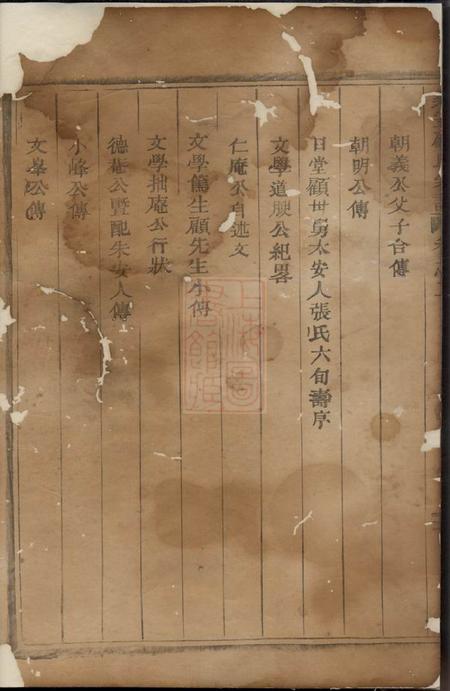 朝義公父子合傳
朝明公傳
日堂顧世舅太安人張氏六旬壽序
文學道腴公紀畧
仁庵公自述文
文學篤生顧先生小傳
文學拙庵公行狀
德菴公暨配朱安人傳
小峰公傳
文峯公傳
上海圖書館藏